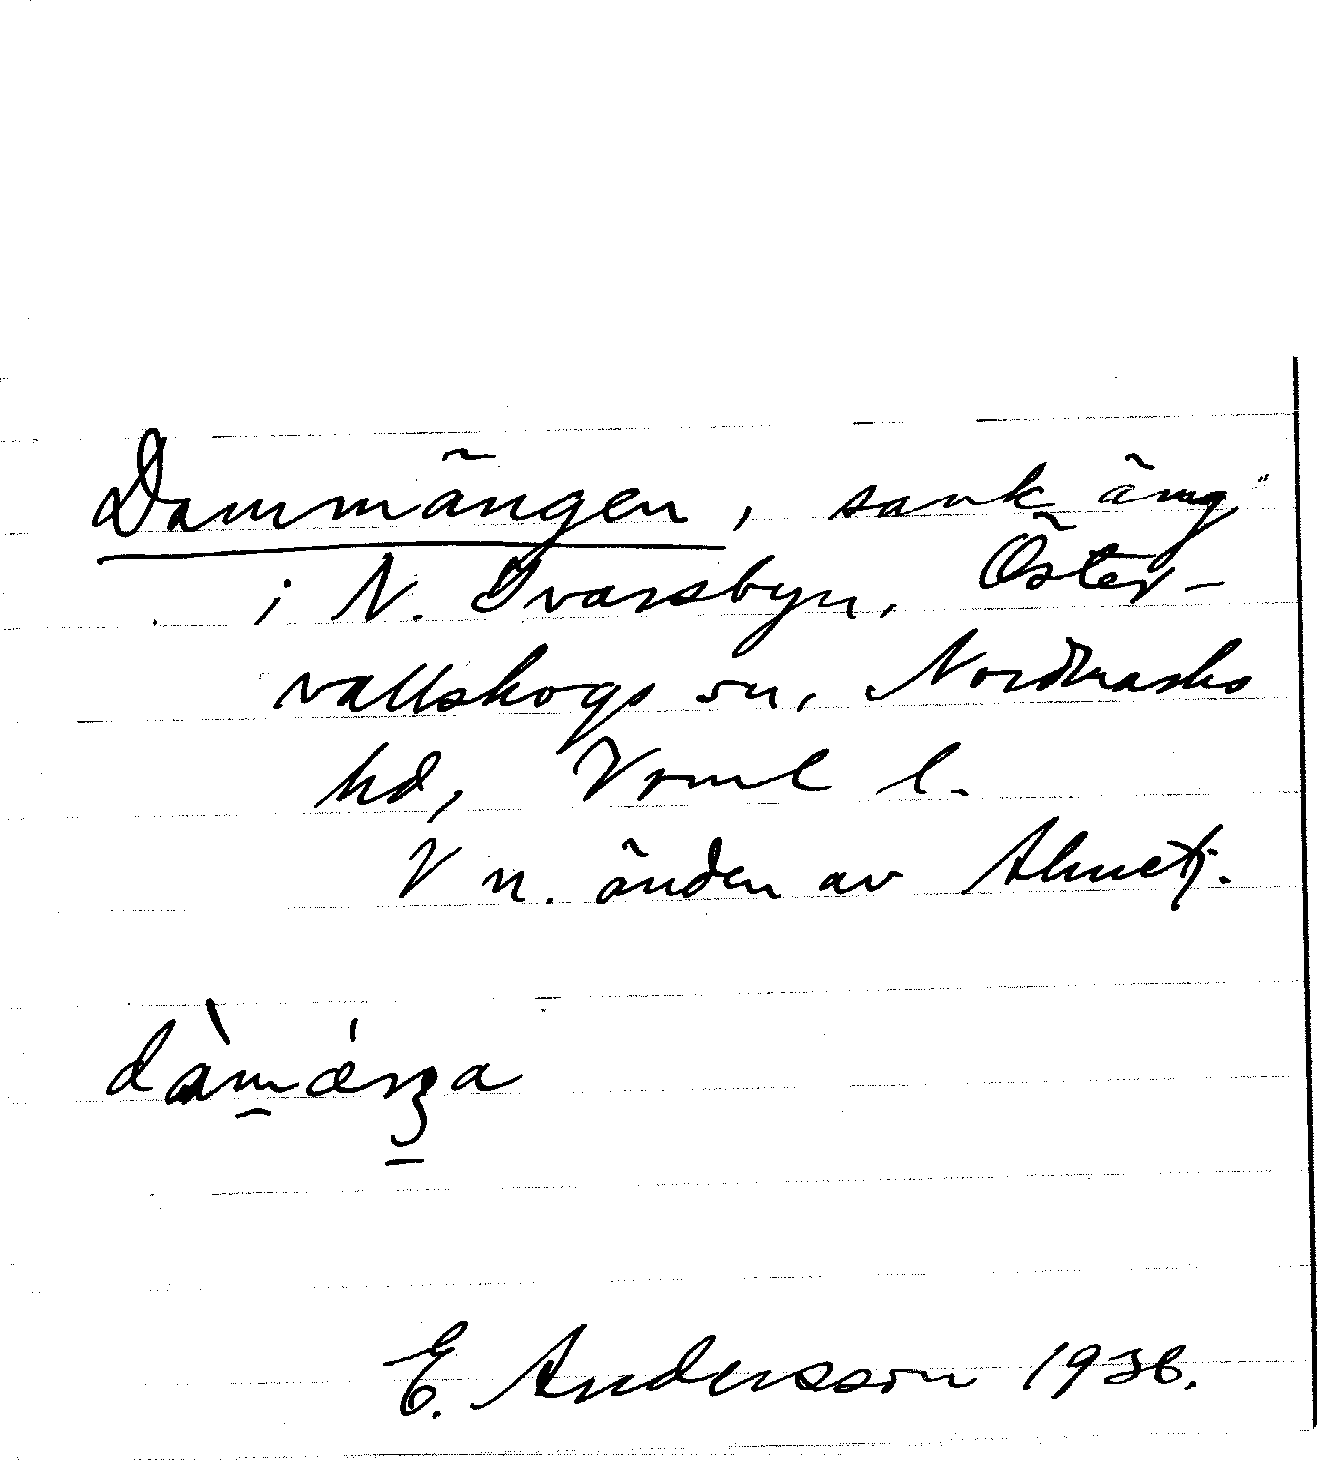 Dammängen, sank äng
i N. Ivarsbyn, Öster-
vallskogs sn, Nordmarks
hd, Vrml l.
V n. änden av
E. Andersson 1936.